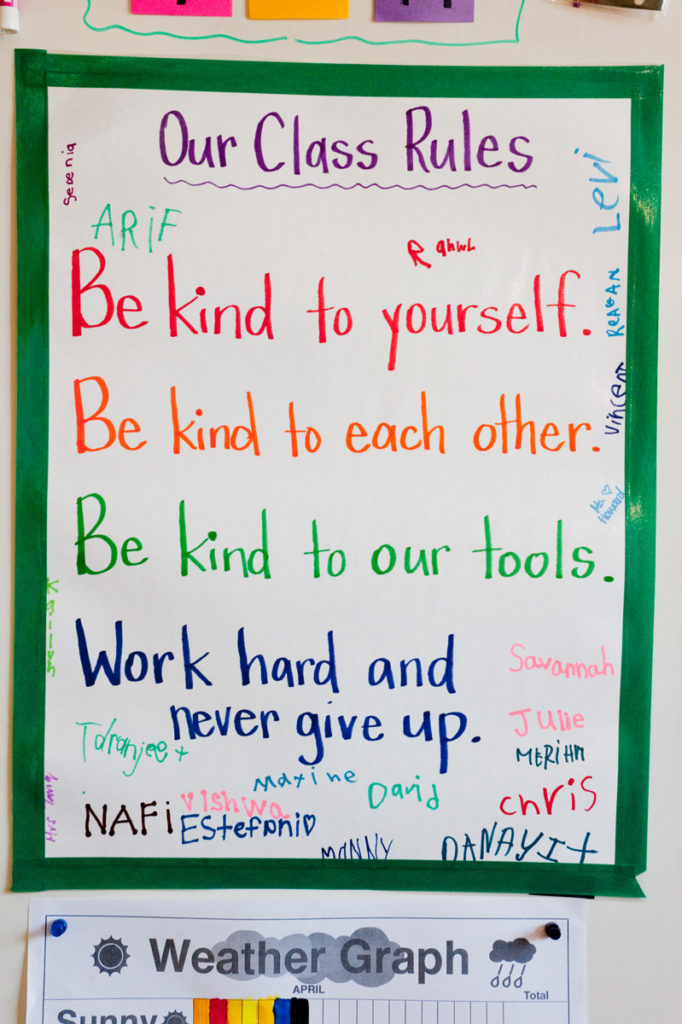 Our Class Rules
Levi
ARiF
Rahwl
Be kind to yourself.
REAGAN
Vincent
Be kind to each other.
Ms. ♡
Howard
Be kind to our tools.
Work hard and
Savannah
never give up.
Julie
Taranjeet
MERIHM
Maxine
David
Chris
Vishwa
NAFi
EStefani♡
Mrs Tang
MaNNY
DANAYIt
Weather Graph
APRIL
Total
Sunny